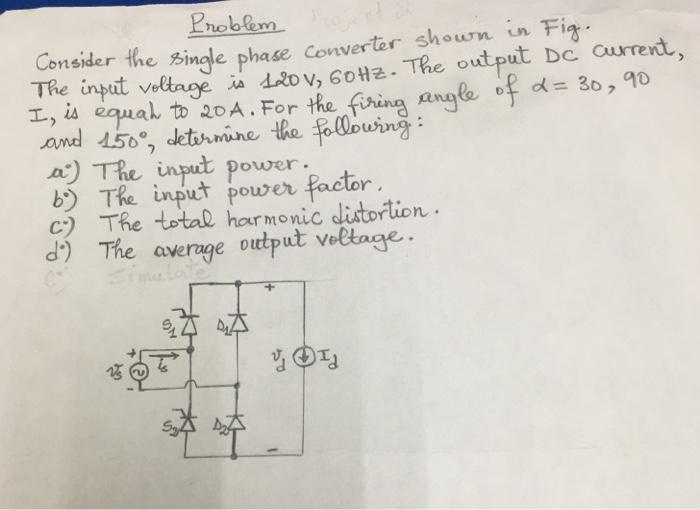 Problem
Consider the single phase converter shown in Fig.
The input voltage is 120V, 60HZ. The output DC current,
I, is equal to 20A. For the firing angle of α= 30, 90
and 150°, determine the following:
a) The input power.
b) The input power factor.
c) The total harmonic distortion.
d) The average output voltage.
Simulate
+
S1 D1
+ is
vs
vd Id
-
S2 D2
-